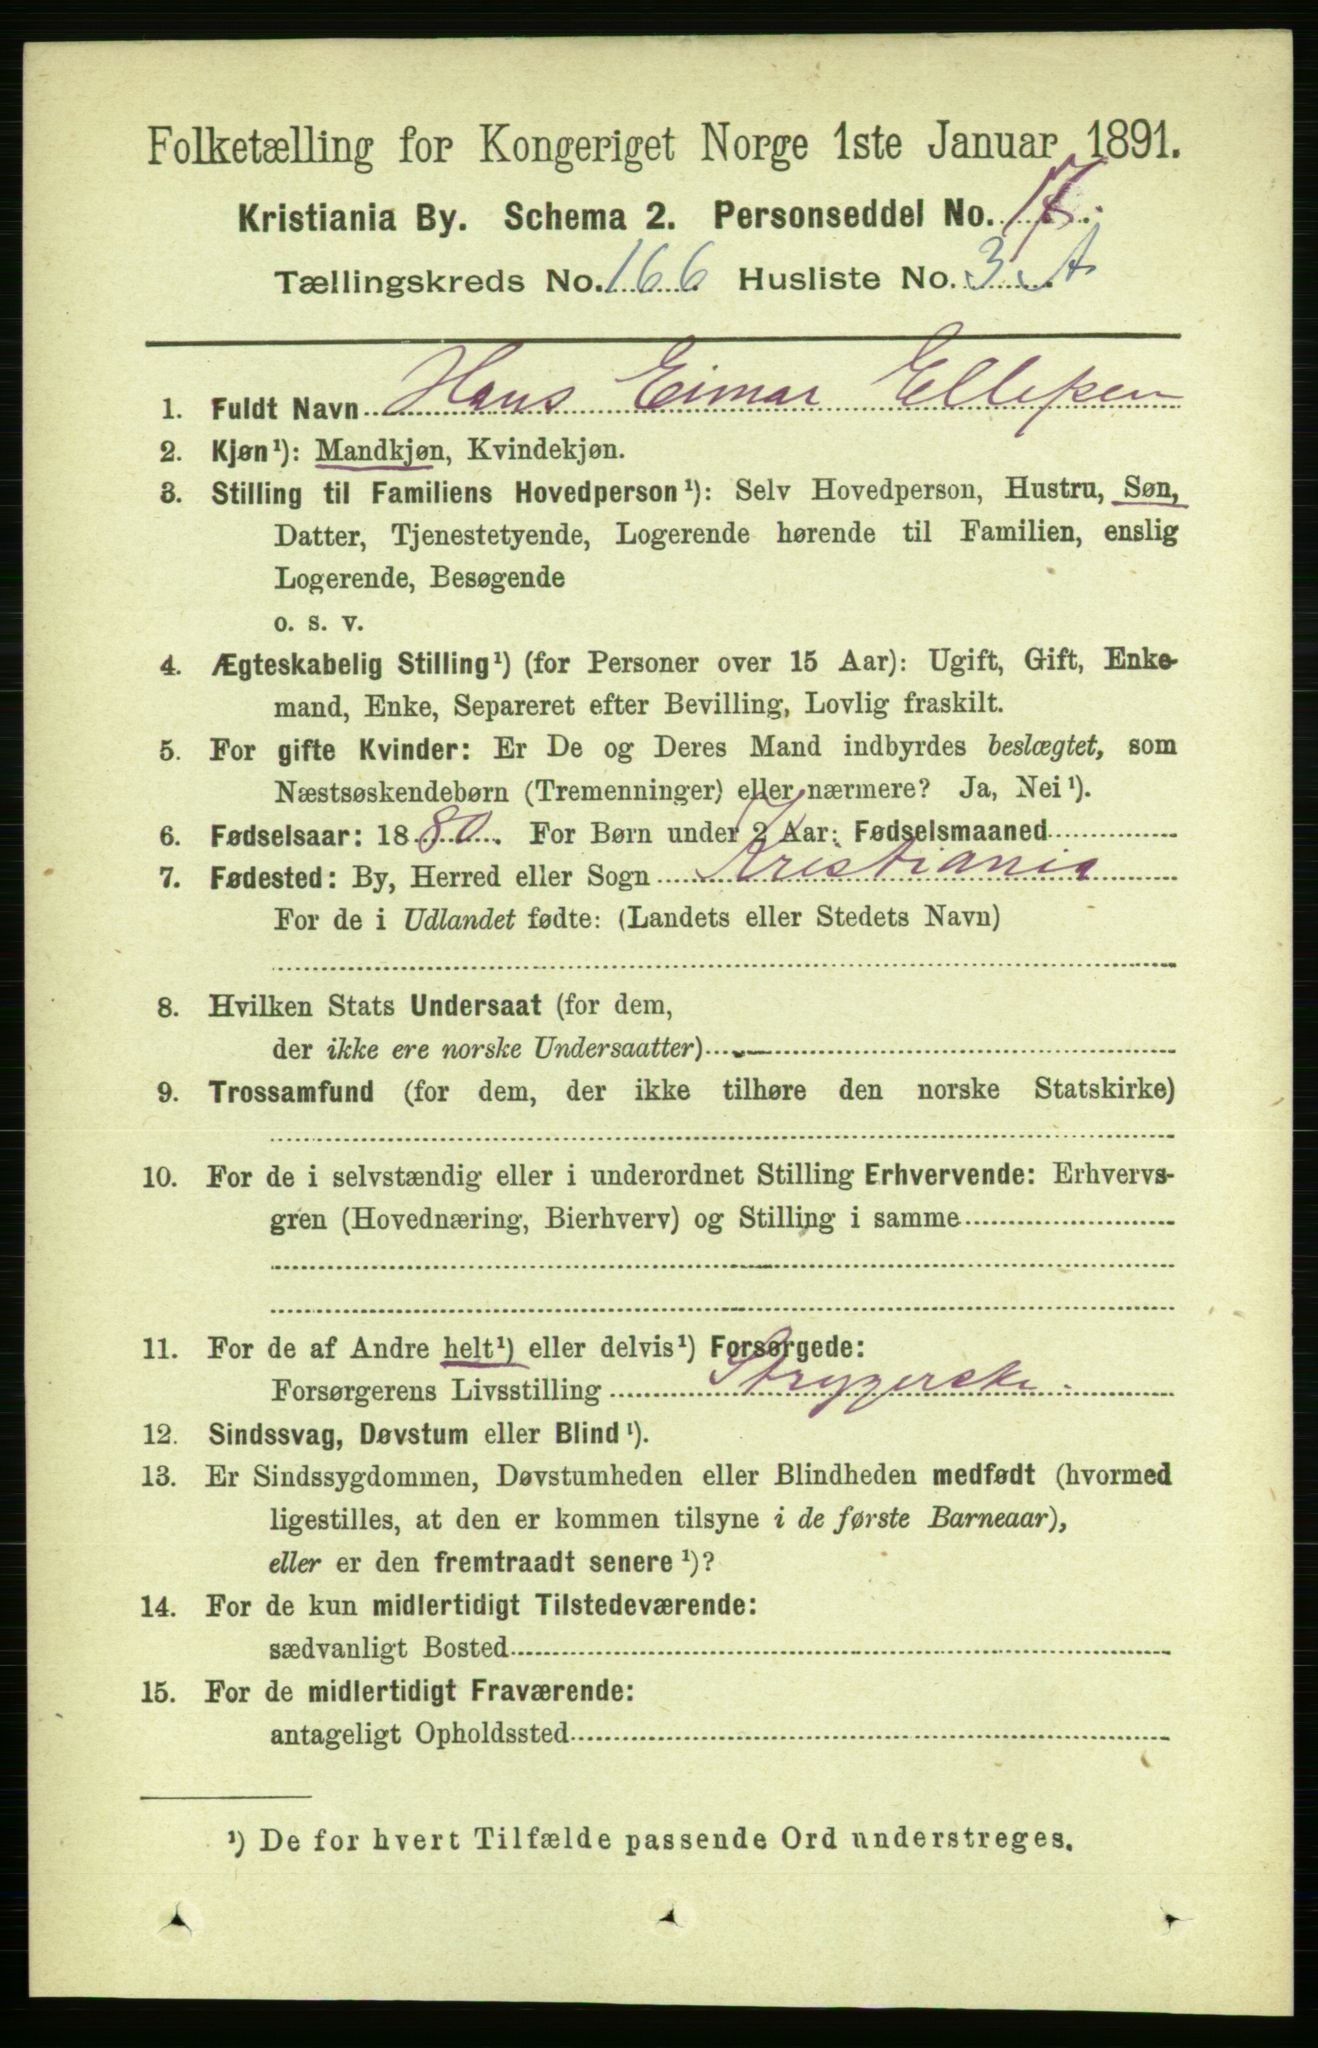 Folketælling for Kongeriget Norge 1ste Januar 1891.
Kristiania By. Schema 2. Personseddel No. 17.
Tællingskreds No. 166 Husliste No. 3 A
1. Fuldt Navn Hans Eimar Ellefsen
2. Kjøn¹): Mandkjøn, Kvindekjøn.
3. Stilling til Familiens Hovedperson¹): Selv Hovedperson, Hustru, Søn,
Datter, Tjenestetyende, Logerende hørende til Familien, enslig
Logerende, Besøgende
o. s. v.
4. Ægteskabelig Stilling¹) (for Personer over 15 Aar): Ugift, Gift, Enke-
mand, Enke, Separeret efter Bevilling, Lovlig fraskilt.
5. For gifte Kvinder: Er De og Deres Mand indbyrdes beslægtet, som
Næstsøskendebørn (Tremenninger) eller nærmere? Ja, Nei¹).
6. Fødselsaar: 1880. For Børn under 2 Aar: Fødselsmaaned
7. Fødested: By, Herred eller Sogn Kristiania
For de i Udlandet fødte: (Landets eller Stedets Navn)
8. Hvilken Stats Undersaat (for dem,
der ikke ere norske Undersaatter)
9. Trossamfund (for dem, der ikke tilhøre den norske Statskirke)
10. For de i selvstændig eller i underordnet Stilling Erhvervende: Erhvervs-
gren (Hovednæring, Bierhverv) og Stilling i samme
11. For de af Andre helt¹) eller delvis¹) Forsørgede:
Forsørgerens Livsstilling Strygerske.
12. Sindssvag, Døvstum eller Blind¹).
13. Er Sindssygdommen, Døvstumheden eller Blindheden medfødt (hvormed
ligestilles, at den er kommen tilsyne i de første Barneaar),
eller er den fremtraadt senere¹)?
14. For de kun midlertidigt Tilstedeværende:
sædvanligt Bosted
15. For de midlertidigt Fraværende:
antageligt Opholdssted
¹) De for hvert Tilfælde passende Ord understreges.